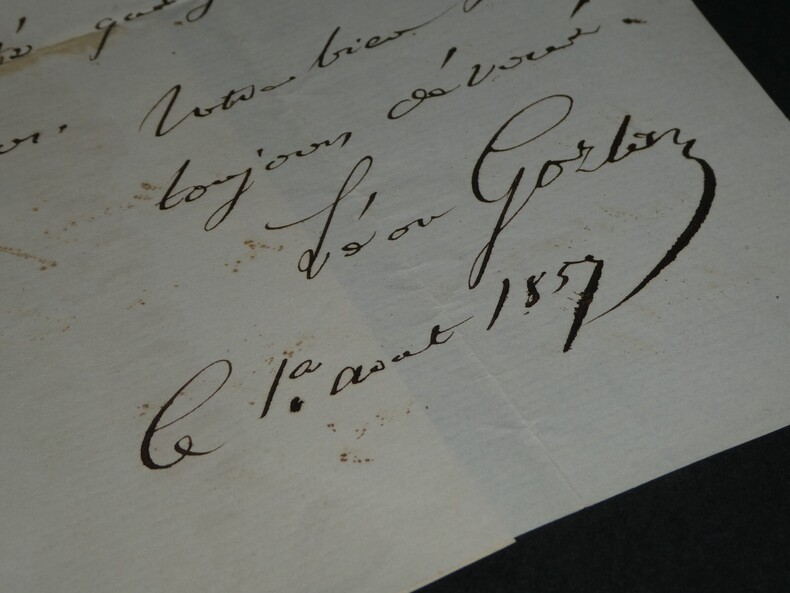 Votre bien
toujours dévoué.
Léon Gozlan
le 1er août 1857